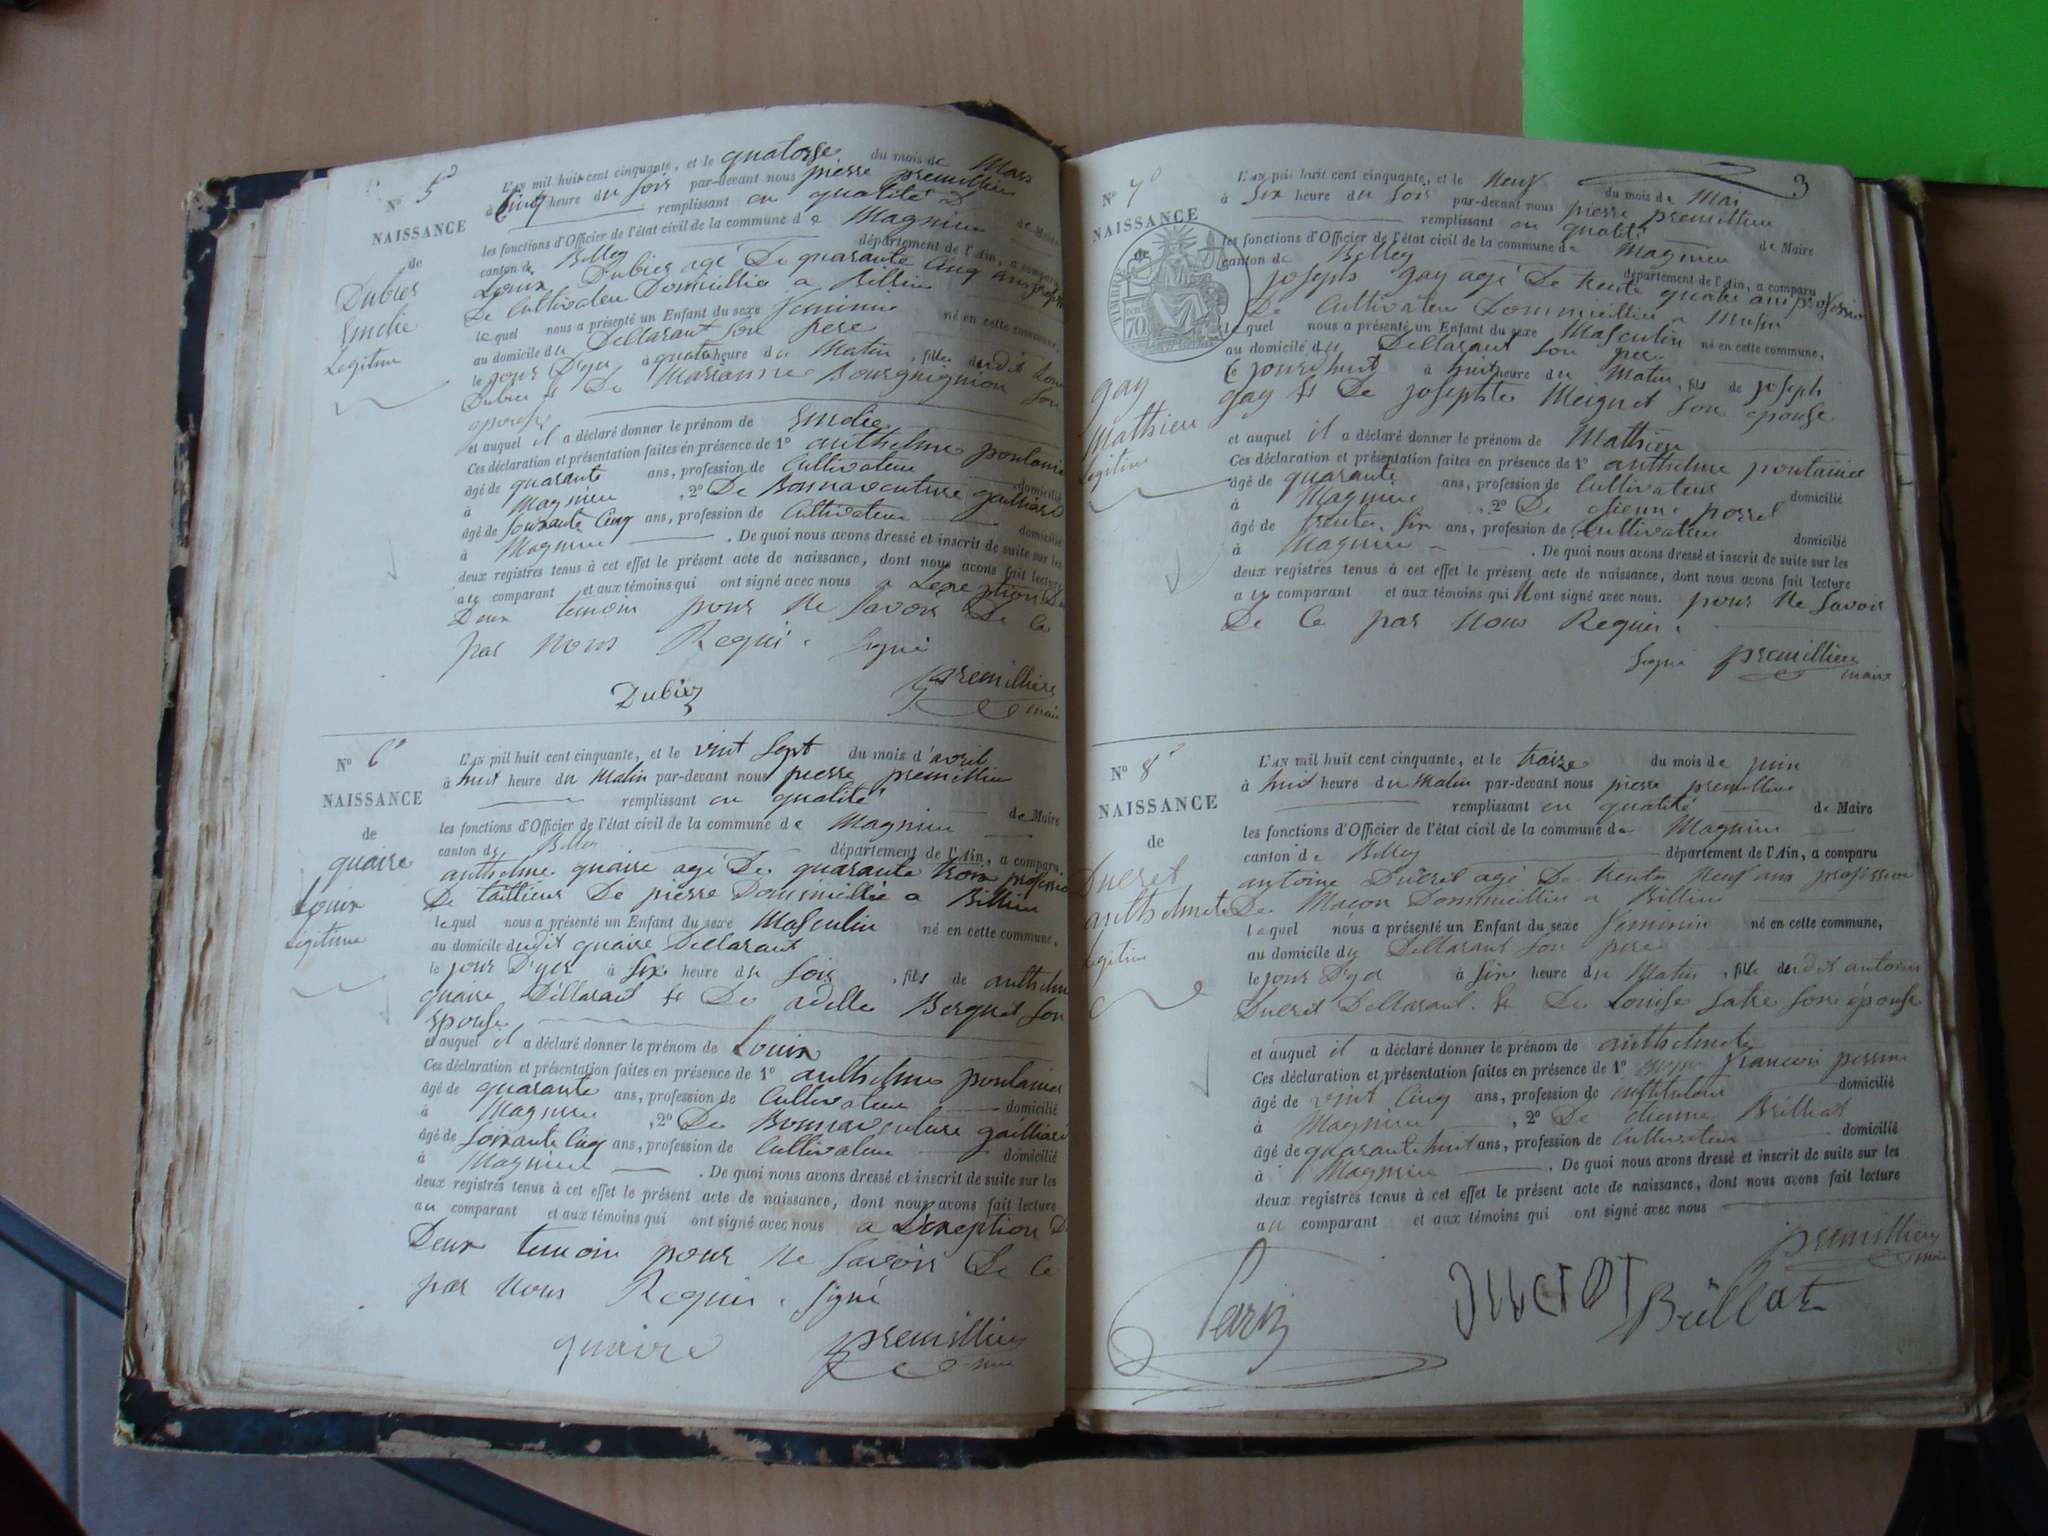 N° 5
NAISSANCE
de
Dubies
Emelie
Legitime
L'AN mil huit cent cinquante, et le quatorse du mois de Mars
à Cinq heure du Soir par-devant nous pierre premillieu
remplissant en qualité de Maire
les fonctions d'Officier de l'état civil de la commune de Magnieu
canton de Belley département de l'Ain, a comparu
Louis Dubies agé De quarante Cinq ans
De Cultivateu Domicillié a Billieu
lequel nous a présenté un Enfant du sexe feminin né en cette commune,
au domicile du Dellarant Son pere
le jour D'yer à quatre heure du Matin, fille dudit Louis
Dubies & De Marianne Bourguignion Son
epouse
et auquel il a déclaré donner le prénom de Emelie
Ces déclaration et présentation faites en présence de 1° anthelme pontanier
âgé de quarante ans, profession de Cultivateur domicilié
à Magnieu, 2° De Bonnaventure gailliard
âgé de Soixante Cinq ans, profession de Cultivateur domicilié
à Magnieu. De quoi nous avons dressé et inscrit de suite sur les
deux registres tenus à cet effet le présent acte de naissance, dont nous avons fait lecture
au comparant et aux témoins qui ont signé avec nous a Lexception De
Deux temoin pour ne Savoir De Ce
par Nous Requi. Signé
Dubiez premillieu
maire
N° 6
NAISSANCE
de
quaire
Louis
Légitime
L'AN mil huit cent cinquante, et le vint Sept du mois d'avril
à huit heure du Matin par-devant nous pierre premillieu
remplissant en qualité de Maire
les fonctions d'Officier de l'état civil de la commune de Magnieu
canton de Belley département de l'Ain, a comparu
anthelme quaire agé De quarante trois profession
De taillieur De pierre Dommicillié a Billieu
lequel nous a présenté un Enfant du sexe Masculin né en cette commune,
au domicile dudit quaire Dellarant
le jour D'yer à Six heure du Soir, fils de anthelme
quaire Dellarant & De adelle Berguet Son
epouse
et auquel il a déclaré donner le prénom de Louis
Ces déclaration et présentation faites en présence de 1° anthelme pontanier
âgé de quarante ans, profession de Cultivateur domicilié
à Magnieu, 2° De Bonnaventure gailliard
âgé de Soixante Cinq ans, profession de Cultivateur domicilié
à Magnieu. De quoi nous avons dressé et inscrit de suite sur les
deux registres tenus à cet effet le présent acte de naissance, dont nous avons fait lecture
au comparant et aux témoins qui ont signé avec nous a Lexception De
Deux temoin pour ne Savoir De Ce
par Nous Requis. Signé
quaire premillieu
maire
3
N° 7
NAISSANCE
de
TIMBRE
70
gay
Mathieu
Legitime
L'AN mil huit cent cinquante, et le Neuf du mois de Mai
à Six heure du Soir par-devant nous pierre premillieu
remplissant en qualité de Maire
les fonctions d'Officier de l'état civil de la commune de Magnieu
canton de Belley département de l'Ain, a comparu
joseph gay agé De trente quatre ans profession
De Cultivateu Dommicillié a Musin
lequel nous a présenté un Enfant du sexe Masculin né en cette commune,
au domicile du Dellarant Son pere
Ce jourd'huit à huit heure du Matin, fils de joseph
gay & De josephte Meignet Son epouse
et auquel il a déclaré donner le prénom de Mathieu
Ces déclaration et présentation faites en présence de 1° anthelme pontanier
âgé de quarante ans, profession de Cultivateur domicilié
à Magnieu, 2° De etienne porret
âgé de trente Six ans, profession de Cultivateur domicilié
à Magnieu. De quoi nous avons dressé et inscrit de suite sur les
deux registres tenus à cet effet le présent acte de naissance, dont nous avons fait lecture
au comparant et aux témoins qui N'ont signé avec nous. pour ne Savoir
De Ce par Nous Requis.
Signé premillieu
maire
N° 8
NAISSANCE
de
Ducret
anthelmete
Legitime
L'AN mil huit cent cinquante, et le traize du mois de juin
à huit heure du Matin par-devant nous pierre premillieu
remplissant en qualité de Maire
les fonctions d'Officier de l'état civil de la commune de Magnieu
canton de Belley département de l'Ain, a comparu
antoine Ducret agé De trente Neuf ans profession
De Maçon Dommicillié a Billieu
lequel nous a présenté un Enfant du sexe feminin né en cette commune,
au domicile du Dellarant Son pere
le jour à Six heure du Matin, fille dudit antoine
Ducret Dellarant. & De Louise Son épouse
et auquel il a déclaré donner le prénom de anthelmete
Ces déclaration et présentation faites en présence de 1° francois
âgé de vint Cinq ans, profession de instituteur domicilié
à Magnieu, 2° De etienne Brilliat
âgé de quarante huit ans, profession de Cultivateur domicilié
à Magnieu. De quoi nous avons dressé et inscrit de suite sur les
deux registres tenus à cet effet le présent acte de naissance, dont nous avons fait lecture
au comparant et aux témoins qui ont signé avec nous
premillieu
maire
DUCROT Brillat